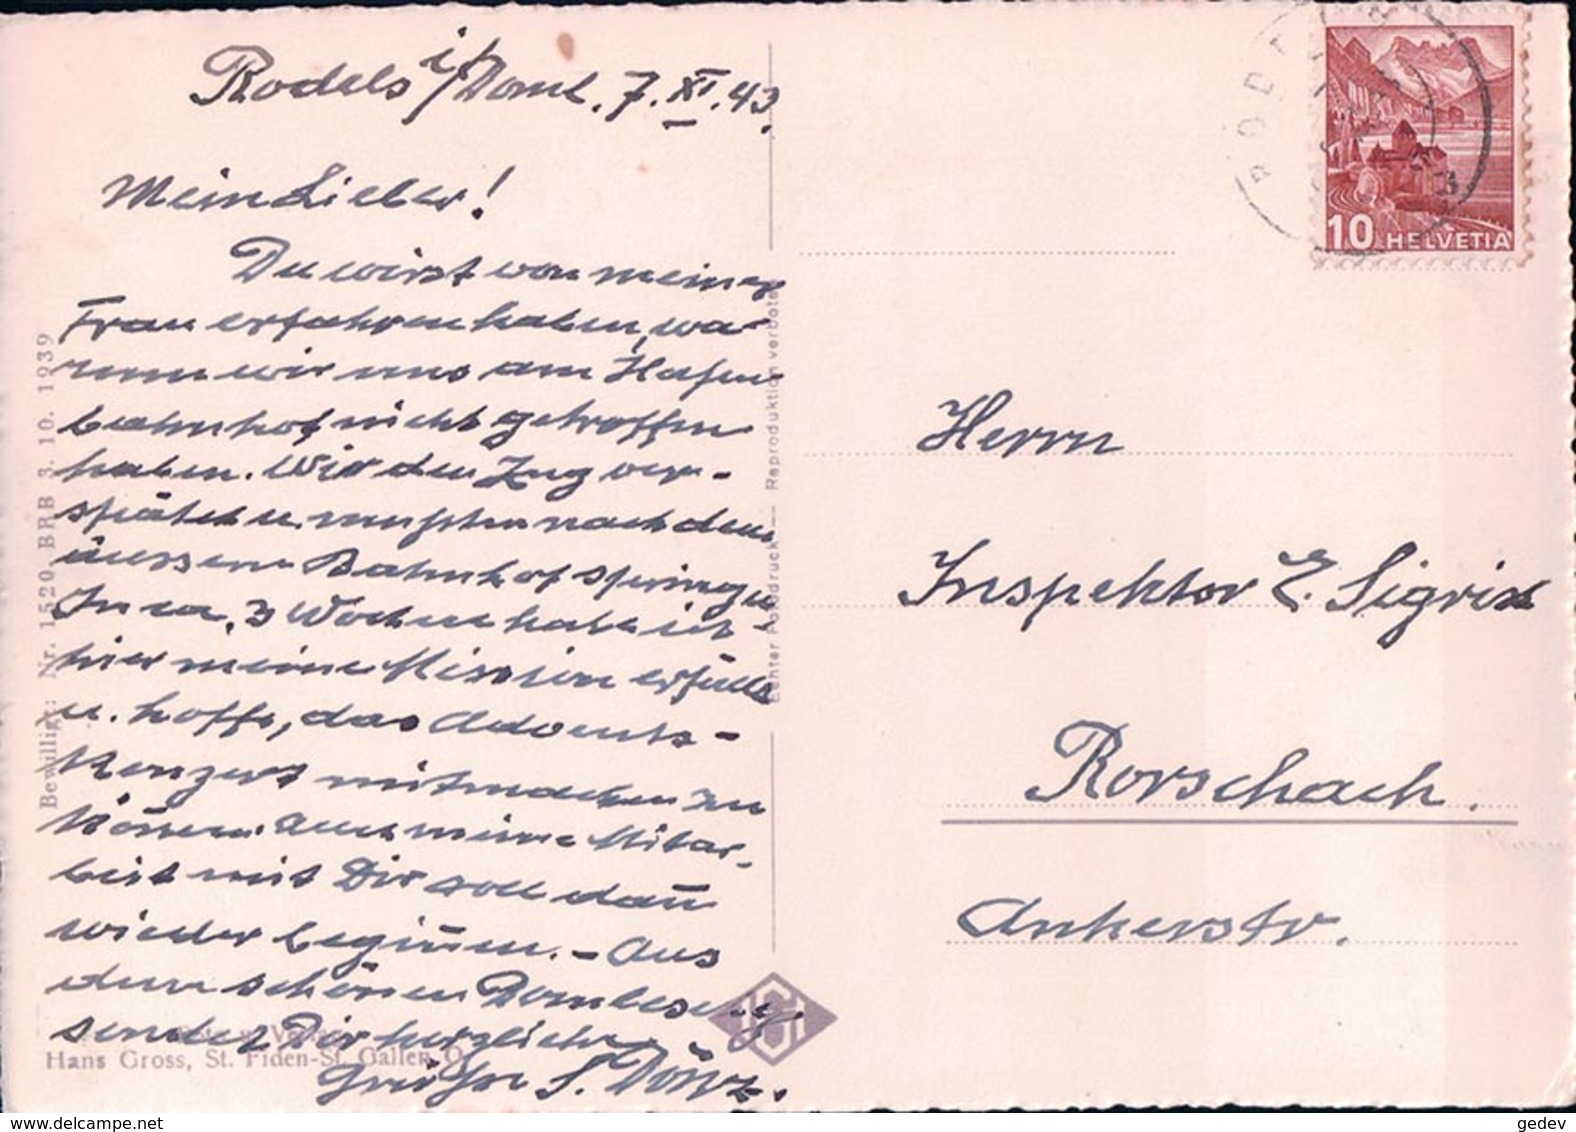 Rodels i/Doml. 7. XI. 43.
Mein Lieber!
Du wirst von meiner
Frau erfahren haben, wa-
rum wir uns am Hafen
bahnhof nicht getroffen
haben. Wir den Zug ver-
spätet u. mussten nach dem
äussern Bahnhof springen.
In ca. 3 Wochen habe ich
hier meine Mission erfüllt
u. hoffe, das Advents-
Konzert mitmachen zu
können. Auch meine Mitar-
beit mit Dir soll dan̄
wieder begin̄en. - Aus
dem schönen Domleschg
sendet Dir herzliche
Grüsse S.
Herrn
Inspektor E. Sigrist
Rorschach.
Ankerstr.
10 HELVETIA
RODELS
Bewilligt: Nr. 1520 BRB 3. 10. 1939
Echter Fotodruck — Reproduktion verboten
Foto u. Verlag
Hans Gross, St. Fiden-St. Gallen O